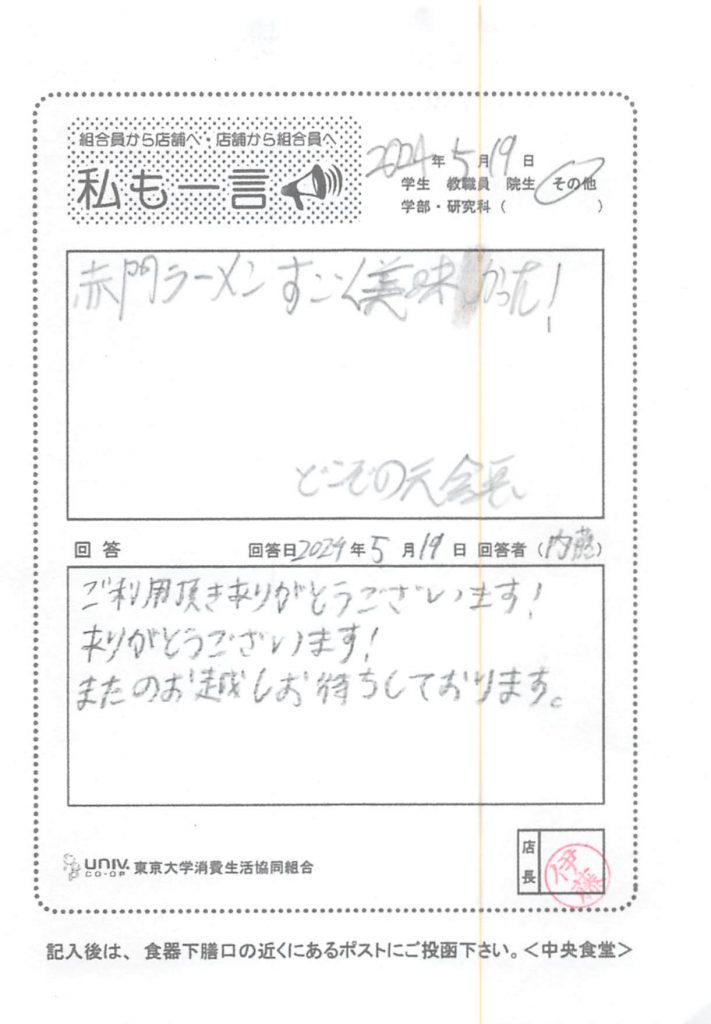 組合員から店舗へ・店舗から組合員へ
私も一言
2024年5月19日
学生 教職員 院生 その他
学部・研究科（ ）
赤門ラーメンすごく美味しかった！
どこぞの元会長
回答 回答日2024年5月19日 回答者（内藤）
ご利用頂きありがとうございます！
ありがとうございます！
またのお越しお待ちしております。
UNIV. CO-OP 東京大学消費生活協同組合
店長
伊藤
記入後は、食器下膳口の近くにあるポストにご投函下さい。＜中央食堂＞